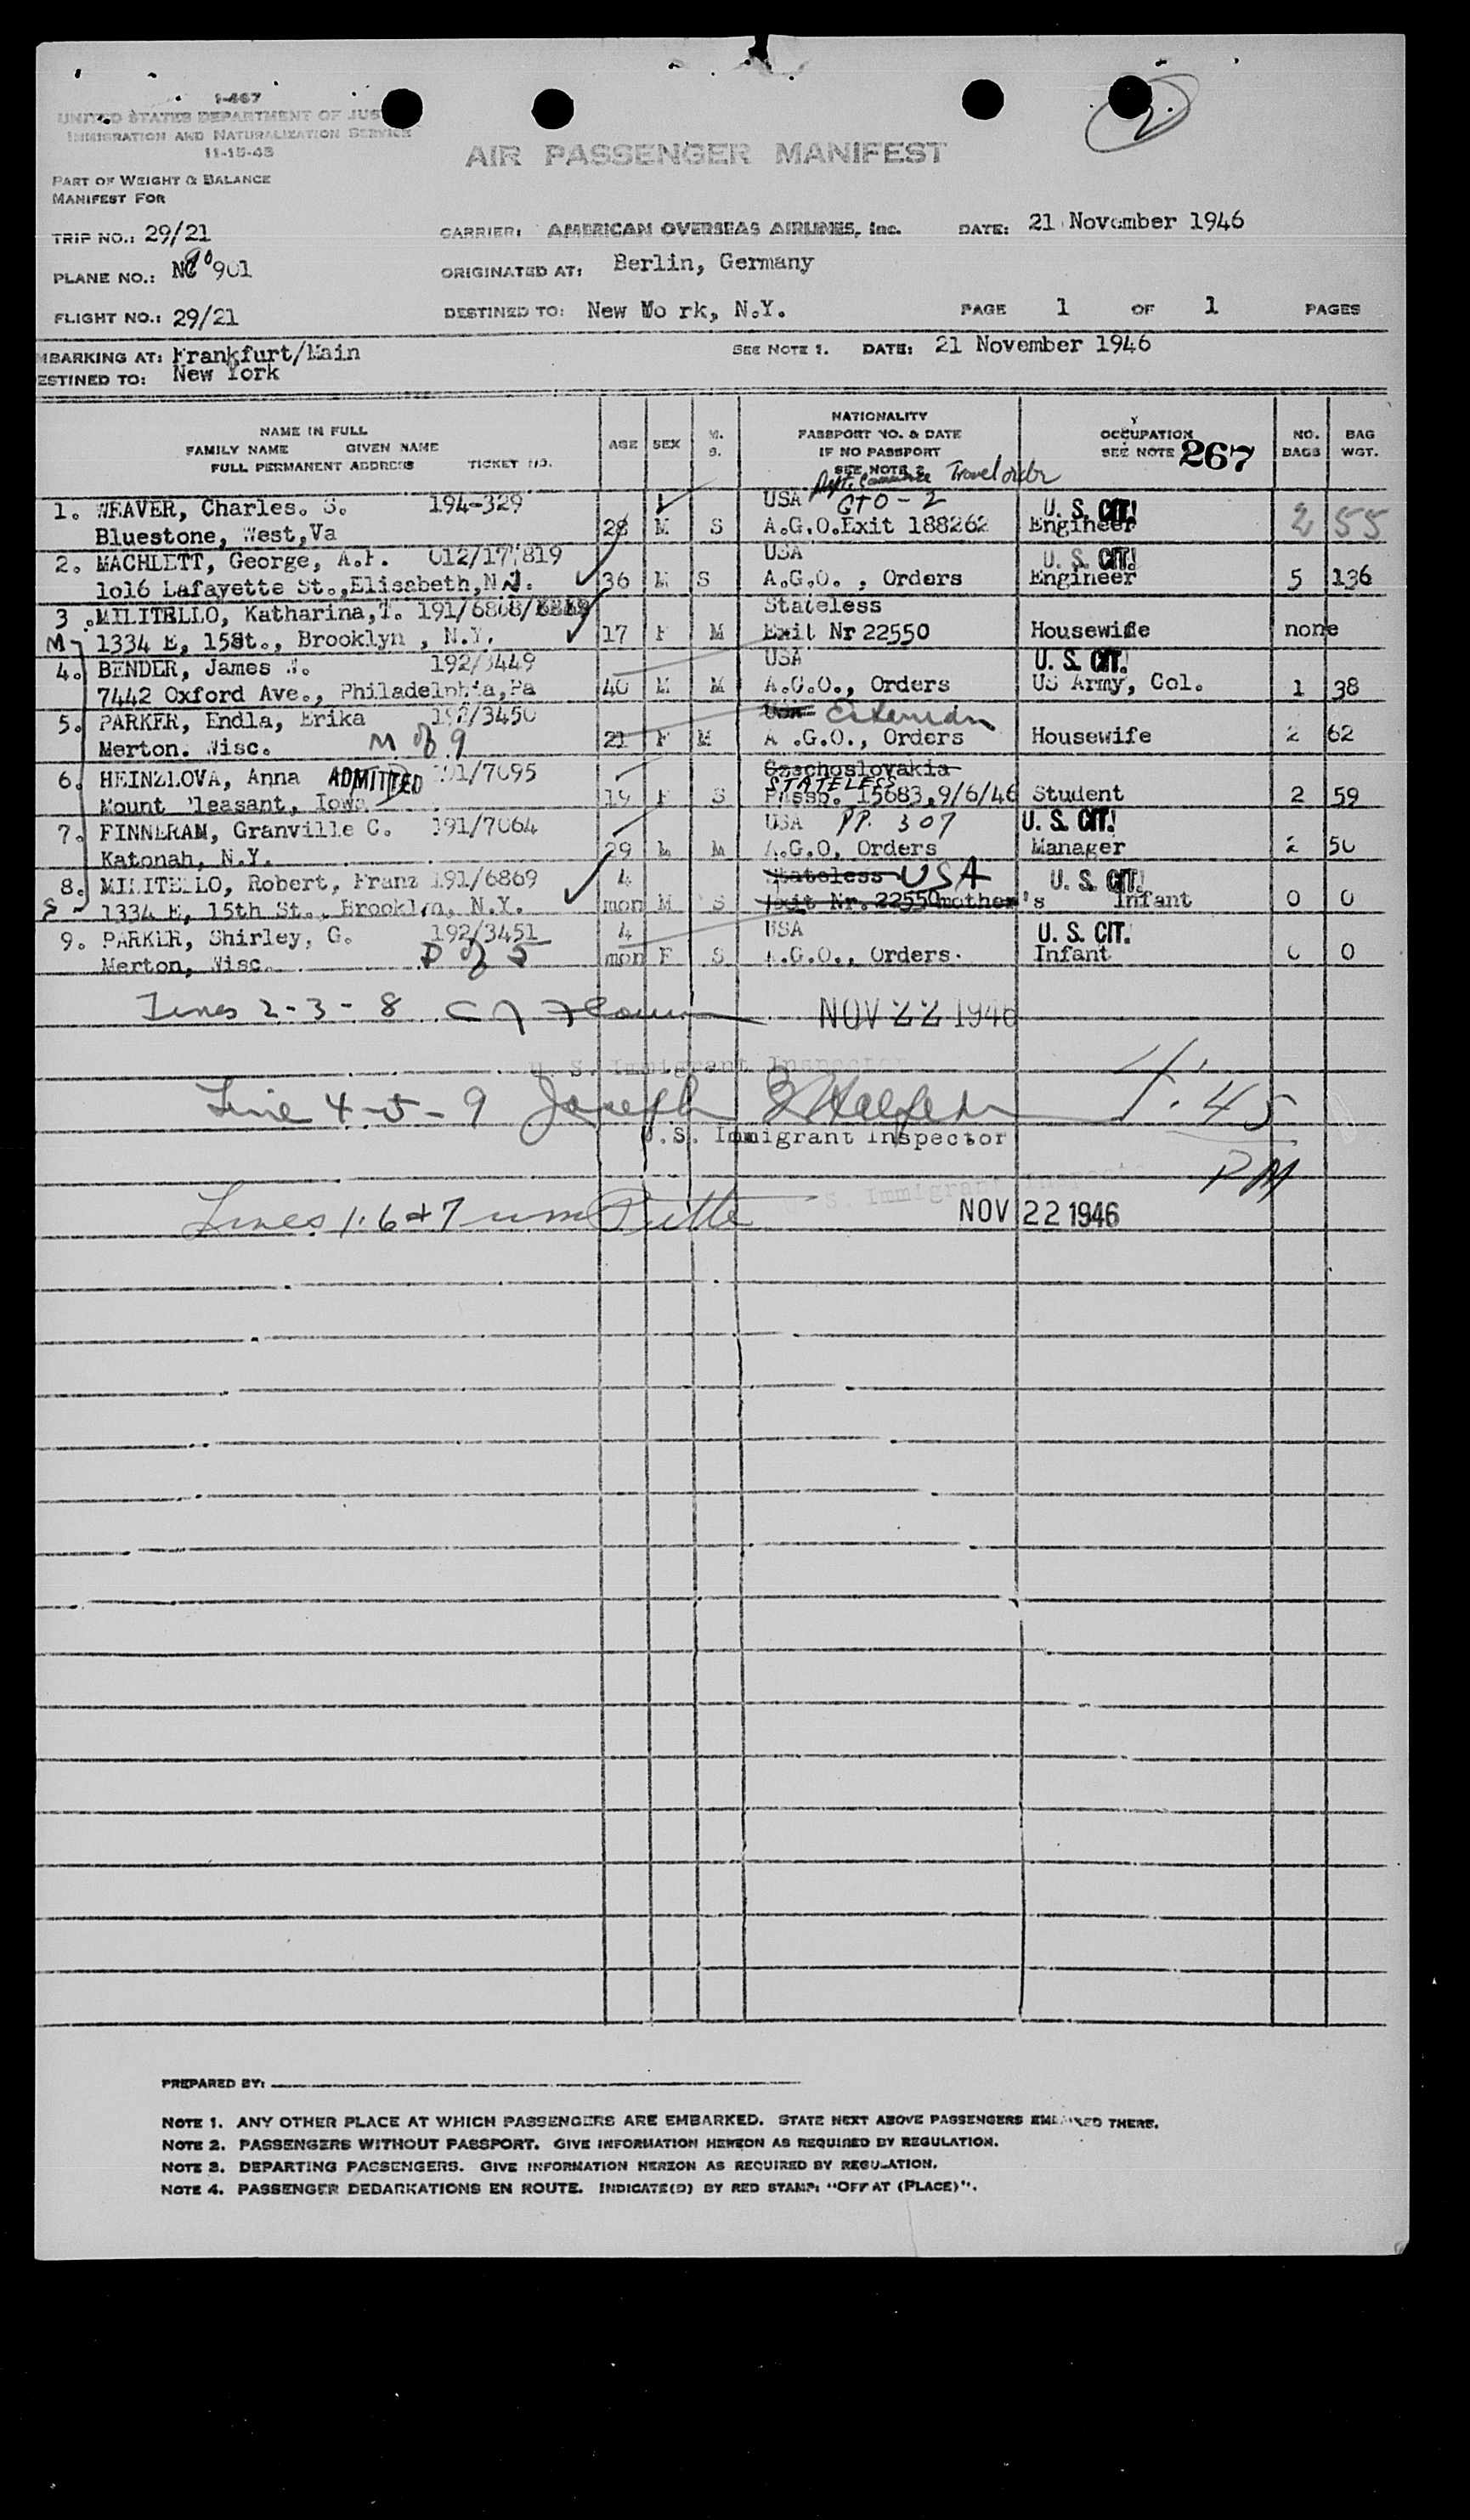 1-467
UNITED STATES DEPARTMENT OF JUS
IMMIGRATION AND NATURALIZATION SERVICE
11-15-43
AIR PASSENGER MANIFEST
2
PART OF WEIGHT & BALANCE
MANIFEST FOR
TRIP NO.: 29/21 CARRIER: AMERICAN OVERSEAS AIRLINES, Inc. DATE: 21 November 1946
90
PLANE NO.: NC 901 ORIGINATED AT: Berlin, Germany
FLIGHT NO.: 29/21 DESTINED TO: New Wo rk, N.Y. PAGE 1 OF 1 PAGES
MBARKING AT: Frankfurt/Main SEE NOTE 1. DATE: 21 November 1946
ESTINED TO: New York
NAME IN FULL
FAMILY NAME GIVEN NAME
FULL PERMANENT ADDRESS TICKET NO.
AGE SEX M. S.
NATIONALITY
PASSPORT NO. & DATE
IF NO PASSPORT
SEE NOTE 2
OCCUPATION
SEE NOTE 267
NO. BAGS
BAG WGT.
Dept. Commerce Travel order
1. WEAVER, Charles. S. 194-329 USA GTO-2 U. S. CIT!
Bluestone, West,Va 28 M S A.G.O.Exit 188262 Engineer 2 55
2. MACHLETT, George, A.F. 012/177819 USA U. S. CIT!
1o16 Lafayette St.,Elisabeth,N.J. 36 M S A.G.O. , Orders Engineer 5 136
3 .MILITELLO, Katharina,T. 191/6868/ Stateless
M 1334 E, 15St., Brooklyn , N.Y. 17 F M Exit Nr 22550 Housewife none
4. BENDER, James 192/3449 USA U. S. CIT!
7442 Oxford Ave., Philadelphia,Pa 40 M M A.G.O., Orders US Army, Col. 1 38
5. PARKER, Endla, Erika 192/3450 USA Estonian
Merton. Wisc. M of 9 21 F M A .G.O., Orders Housewife 2 62
6. HEINZLOVA, Anna ADMITTED 191/7095 Czechoslovakia
STATELESS
Mount Pleasant, Iowa 19 F S Passp. 15683,9/6/46 Student 2 59
7. FINNERAM, Granville C. 191/7064 USA PP. 307 U. S. CIT!
Katonah, N.Y. 29 M M A.G.O, Orders Manager 2 50
8. MILITELLO, Robert, Franz 191/6869 4 Stateless USA U. S. CIT!
S 1334 E, 15th St., Brooklyn, N.Y. mon M S Exit Nr. 22550mother's Infant 0 0
9. PARKER, Shirley, G. 192/3451 4 USA U. S. CIT!
Merton, Wisc. D of 5 mon F S A.G.O., Orders. Infant 0 0
Lines 2-3-8 NOV 22 1946
U. S. Immigrant Inspector
Line 4-5-9 Joseph 4.45
U.S. Immigrant Inspector
PM
S. Immigrant Inspector
Lines 1.6+7 NOV 22 1946
PREPARED BY:
NOTE 1. ANY OTHER PLACE AT WHICH PASSENGERS ARE EMBARKED. STATE NEXT ABOVE PASSENGERS EMBARKED THERE.
NOTE 2. PASSENGERS WITHOUT PASSPORT. GIVE INFORMATION HEREON AS REQUIRED BY REGULATION.
NOTE 3. DEPARTING PASSENGERS. GIVE INFORMATION HEREON AS REQUIRED BY REGULATION.
NOTE 4. PASSENGER DEBARKATIONS EN ROUTE. INDICATE(D) BY RED STAMP: "OFF AT (PLACE)".